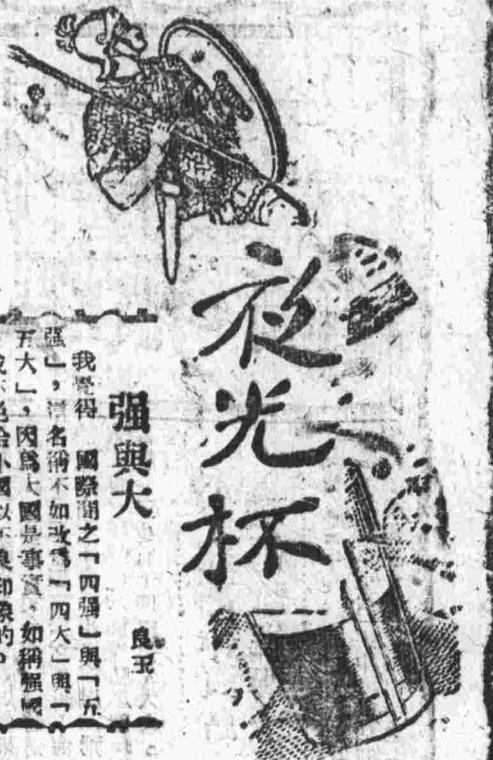 夜光杯
强與大
良玉
我覺得 國際間之「四强」與「五
强」,名稱不如改爲「四大」與「
五大」,因爲大國是事實,如稱强國
給小國以不良印象的。